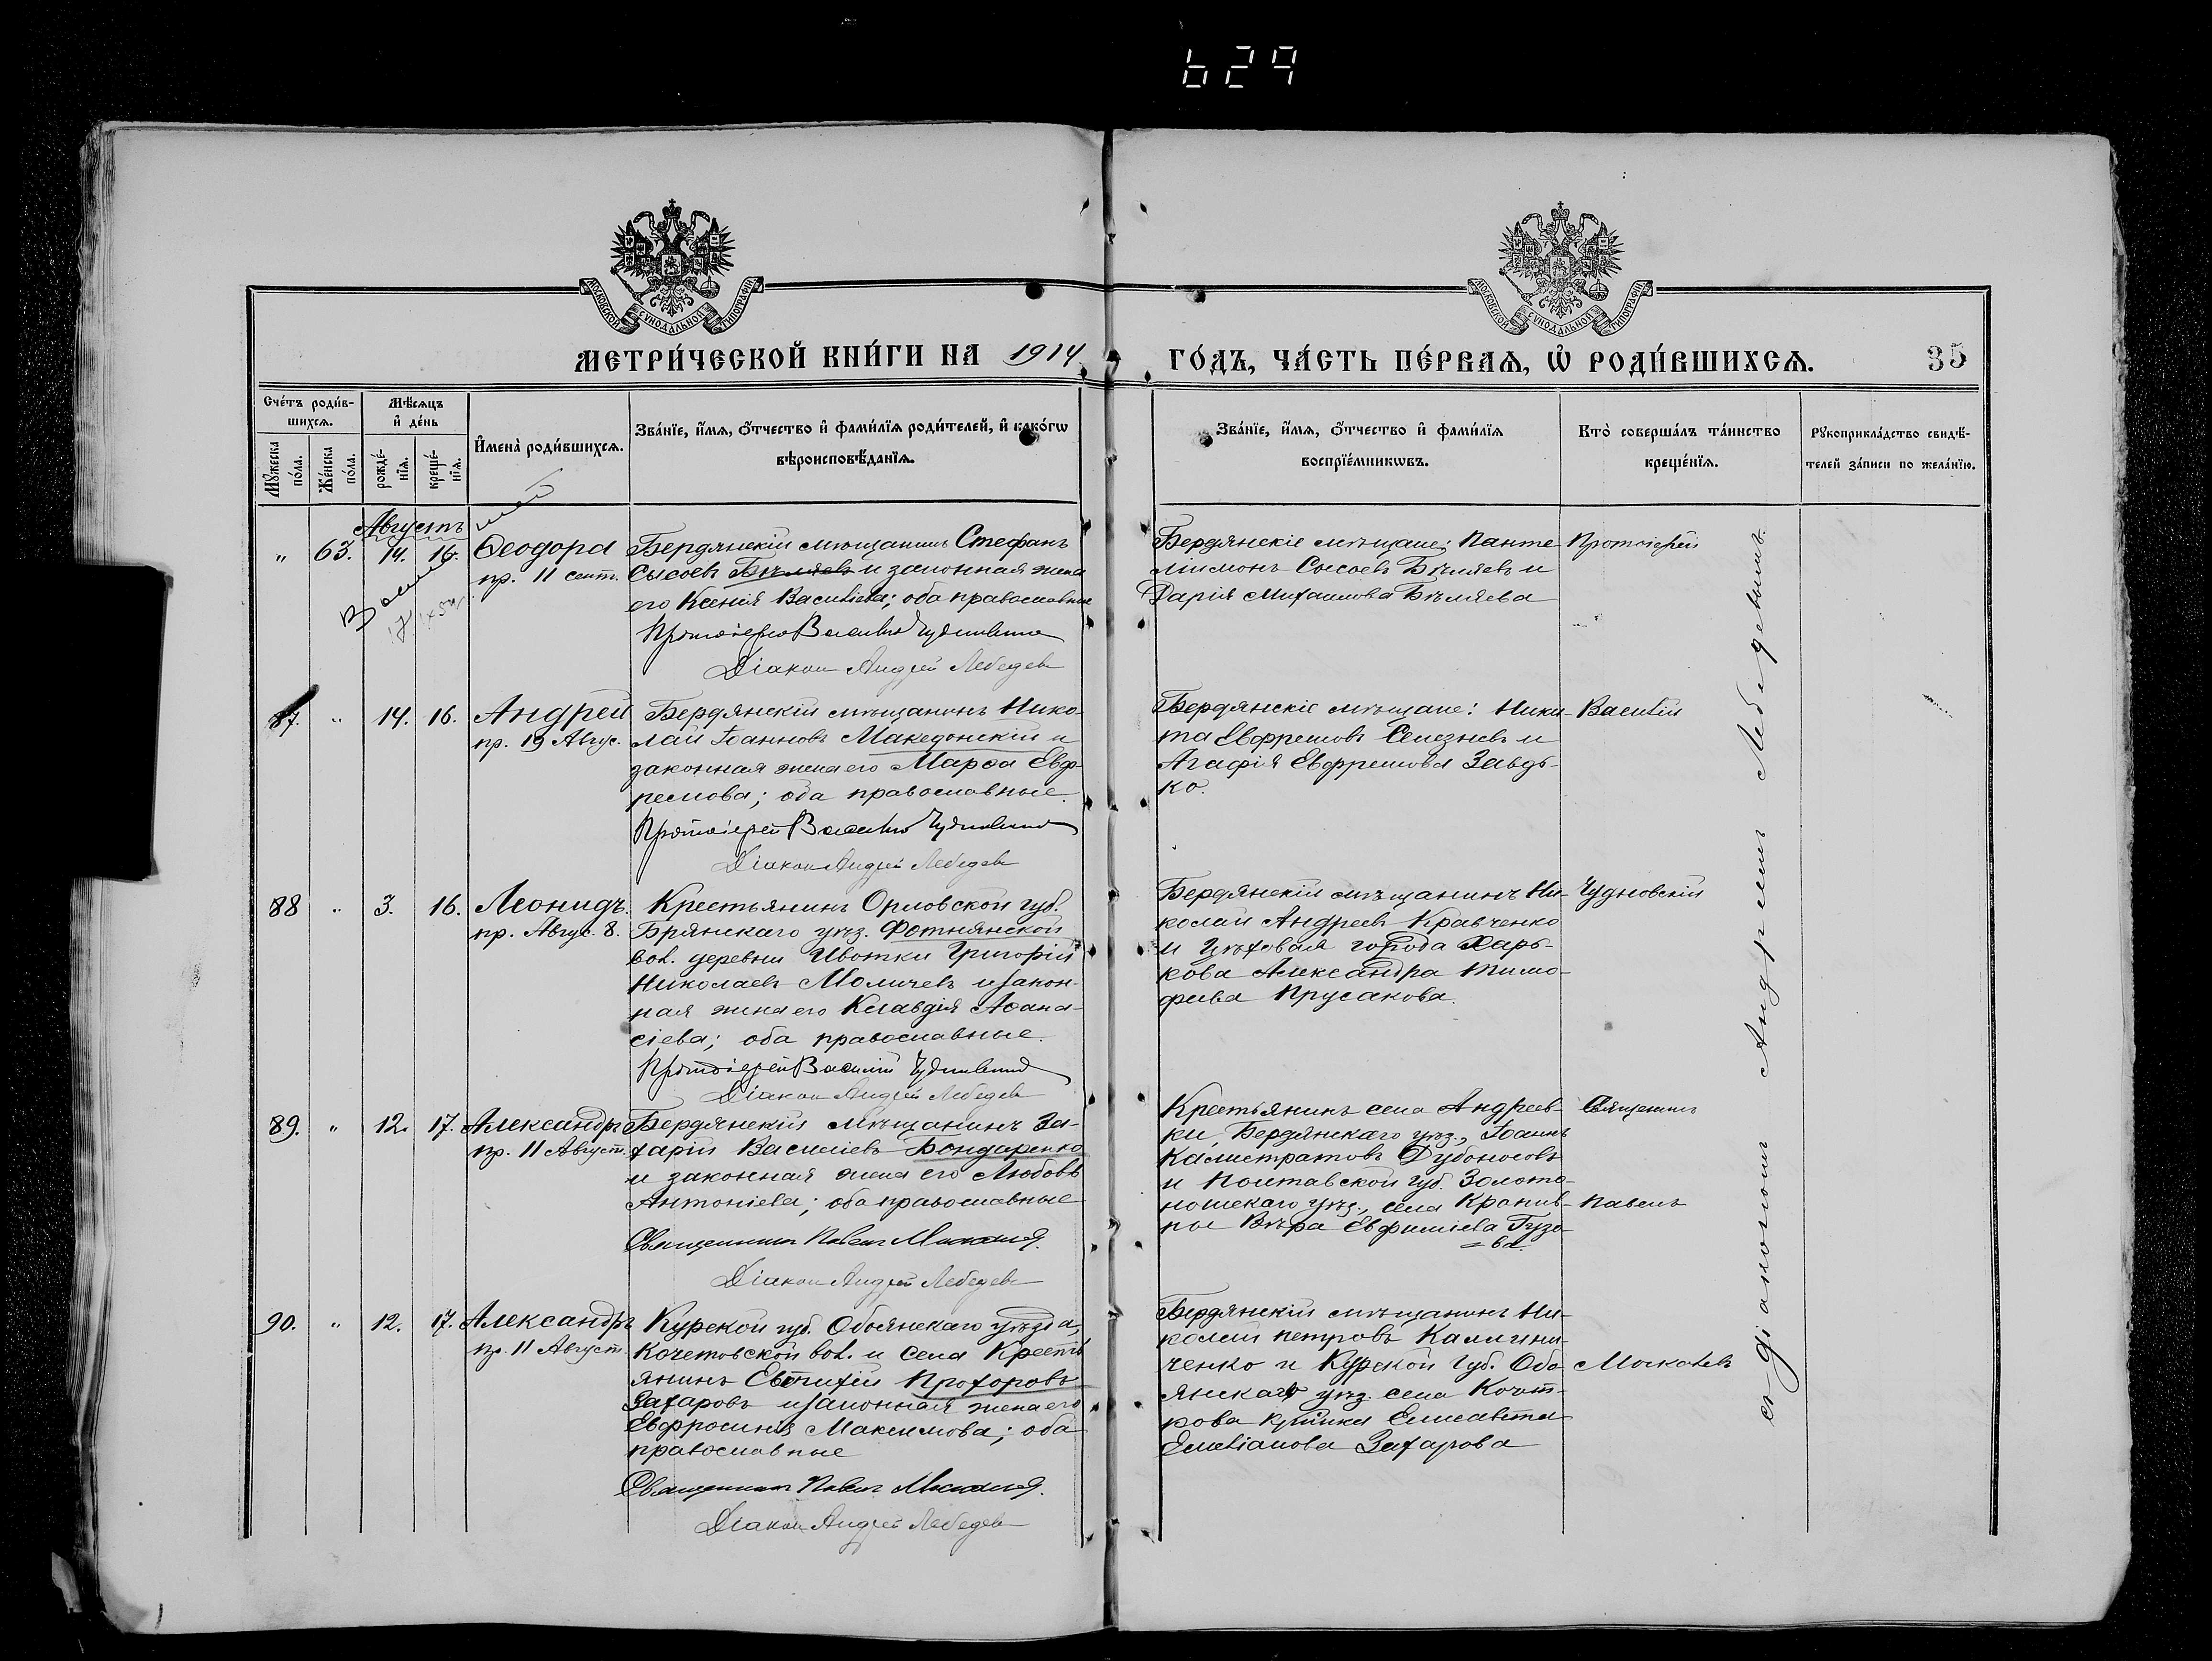 629
МОСКОВСКОЙ СУНОДАЛЬНОЙ ТИПОГРАФІИ
МОСКОВСКОЙ СУНОДАЛЬНОЙ ТИПОГРАФІИ
МЕТРИ́ЧЕСКОЙ КНИ́ГИ НА 1914
ГО́ДЪ, ЧА́СТЬ ПЕ́РВАѦ, Ѡ РОДИ́ВШИХСѦ.
35
Сче́тъ роди́в-
шихсѧ.
Мꙋ́жеска по́ла.
Же́нска по́ла.
Мѣ́сѧцъ
и҆ де́нь
рожде́-
нїѧ.
креще́-
нїѧ.
И҆мена̀ роди́вшихсѧ.
Зва́нїе, и҆́мѧ, ѻ҆́тчество и҆ фами́лїѧ роди́телей, и҆ како́гѡ
вѣроисповѣ́данїѧ.
Зва́нїе, и҆́мѧ, ѻ҆́тчество и҆ фами́лїѧ
воспрїе́мникѡвъ.
Кто̀ соверша́лъ та́инство
креще́нїѧ.
Рꙋкоприкла́дство свидѣ́-
телей за́писи по жела́нїю.
Августъ
„ 63. 14. 16. Ѳеодора
пр. 11 сент.
Бердянскій мѣщанинъ Стефанъ
Сысоевъ Бѣляевъ и законная жена
его Ксенія Васильева; оба православные
Протоіерей Василій Чудновскій
Діаконъ Андрей Лебедевъ
Бердянскіе мѣщане: Панте-
лиимонъ Сысоевъ Бѣляевъ и
Дарія Михаилова Бѣляева
Протоіерей
87. „ 14. 16. Андрей
пр. 19 Авгус.
Бердянскій мѣщанинъ Нико-
лай Іоанновъ Македонскій и
законная жена его Марѳа Евф-
ремова; оба православные.
Протоіерей Василій Чудновскій
Діаконъ Андрей Лебедевъ
Бердянскіе мѣщане: Ники-
та Евфремовъ Селезневъ и
Агафія Евфремова Завдь-
ко.
Василій
88 „ 3. 16. Леонидъ.
пр. Авгус. 8.
Крестьянинъ Орловской губ.
Брянскаго уѣз. Фотнянской
вол. деревни Ивотки Григорій
Николаевъ Моличевъ и закон-
ная жена его Клавдія Аѳана-
сіева; оба православные.
Протоіерей Василій Чудновскій
Діаконъ Андрей Лебедевъ
Бердянскій мѣщанинъ Ни-
колай Андреевъ Кравченко
и цѣховая города Харь-
кова Александра Тимо-
феева Прусакова.
Чудновскій
89. „ 12. 17. Александръ
пр. 11 Август.
Бердянскій мѣщанинъ За-
харій Василіевъ Бондаренко
и законная жена его Любовь
Антоніева; оба православные
Священникъ Павелъ Москалевъ
Діаконъ Андрей Лебедевъ
Крестьянинъ села Андреев-
ки, Бердянскаго уѣз., Іоаннъ
Калистратовъ Дубоносовъ
и Полтавской губ. Золото-
ношскаго уѣз., села Кропив-
ны Вѣра Евфиміева Гузо-
=ва.
Священникъ
Павелъ
90. „ 12. 17. Александръ
пр. 11 Август.
Курской губ. Обоянскаго уѣзда,
Кочетовской вол. и села Кресть-
янинъ Евтихій Прохоровъ
Захаровъ и законная жена его
Евфросинія Максимова; оба
православные
Священникъ Павелъ Москалевъ
Діаконъ Андрей Лебедевъ
Бердянскій мѣщанинъ Ни-
колай Петровъ Калини-
ченко и Курской губ. Обо-
янскаго уѣз. села Кочет-
кова Елисавета
Емеліанова Захарова
Москалевъ
съ діакономъ Андреемъ Лебедевымъ.